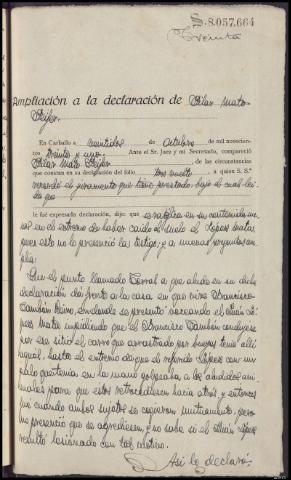 S.8.057.664
Treinta
Ampliación a la declaración de Pilar Mato
En Carballo a veintidos de octubre de mil novecien-
tos treinta y uno. Ante el Sr. Juez y mi Secretario, compareció
Pilar Mato de las circunstancias
que constan en su declaración del folio dos vuelto a quien S. S.ª
recordó el juramento que tiene prestado, bajo el cual leí-
da que
le fué expresada declaración, dijo: que se ratifica en su contenido me-
nos en el extremo de haber caido al suelo el López Mato
pues esto no lo presenció la testigo; y a nuevas preguntas am-
plía:
Que el punto llamado Corral a que alude en su dicha
declaración dá frente a la casa en que vive Francisco
en donde se presentó voceando el
Mato impidiendo que el Francisco condujese
por ese sitio el carro que arrastrado por bueyes tenía allí
aquél, hasta el extremo de que el referido López con un
palo que tenía en la mano golpeaba a los aludidos ani-
males para que estos retrocediesen hacia atrás, y entonces
fué cuando ambos sujetos se cogieron mutuamente, pero
no presenció que se agrediesen, y no sabe si el López
resultó lesionado con tal motivo.
Así lo declaró